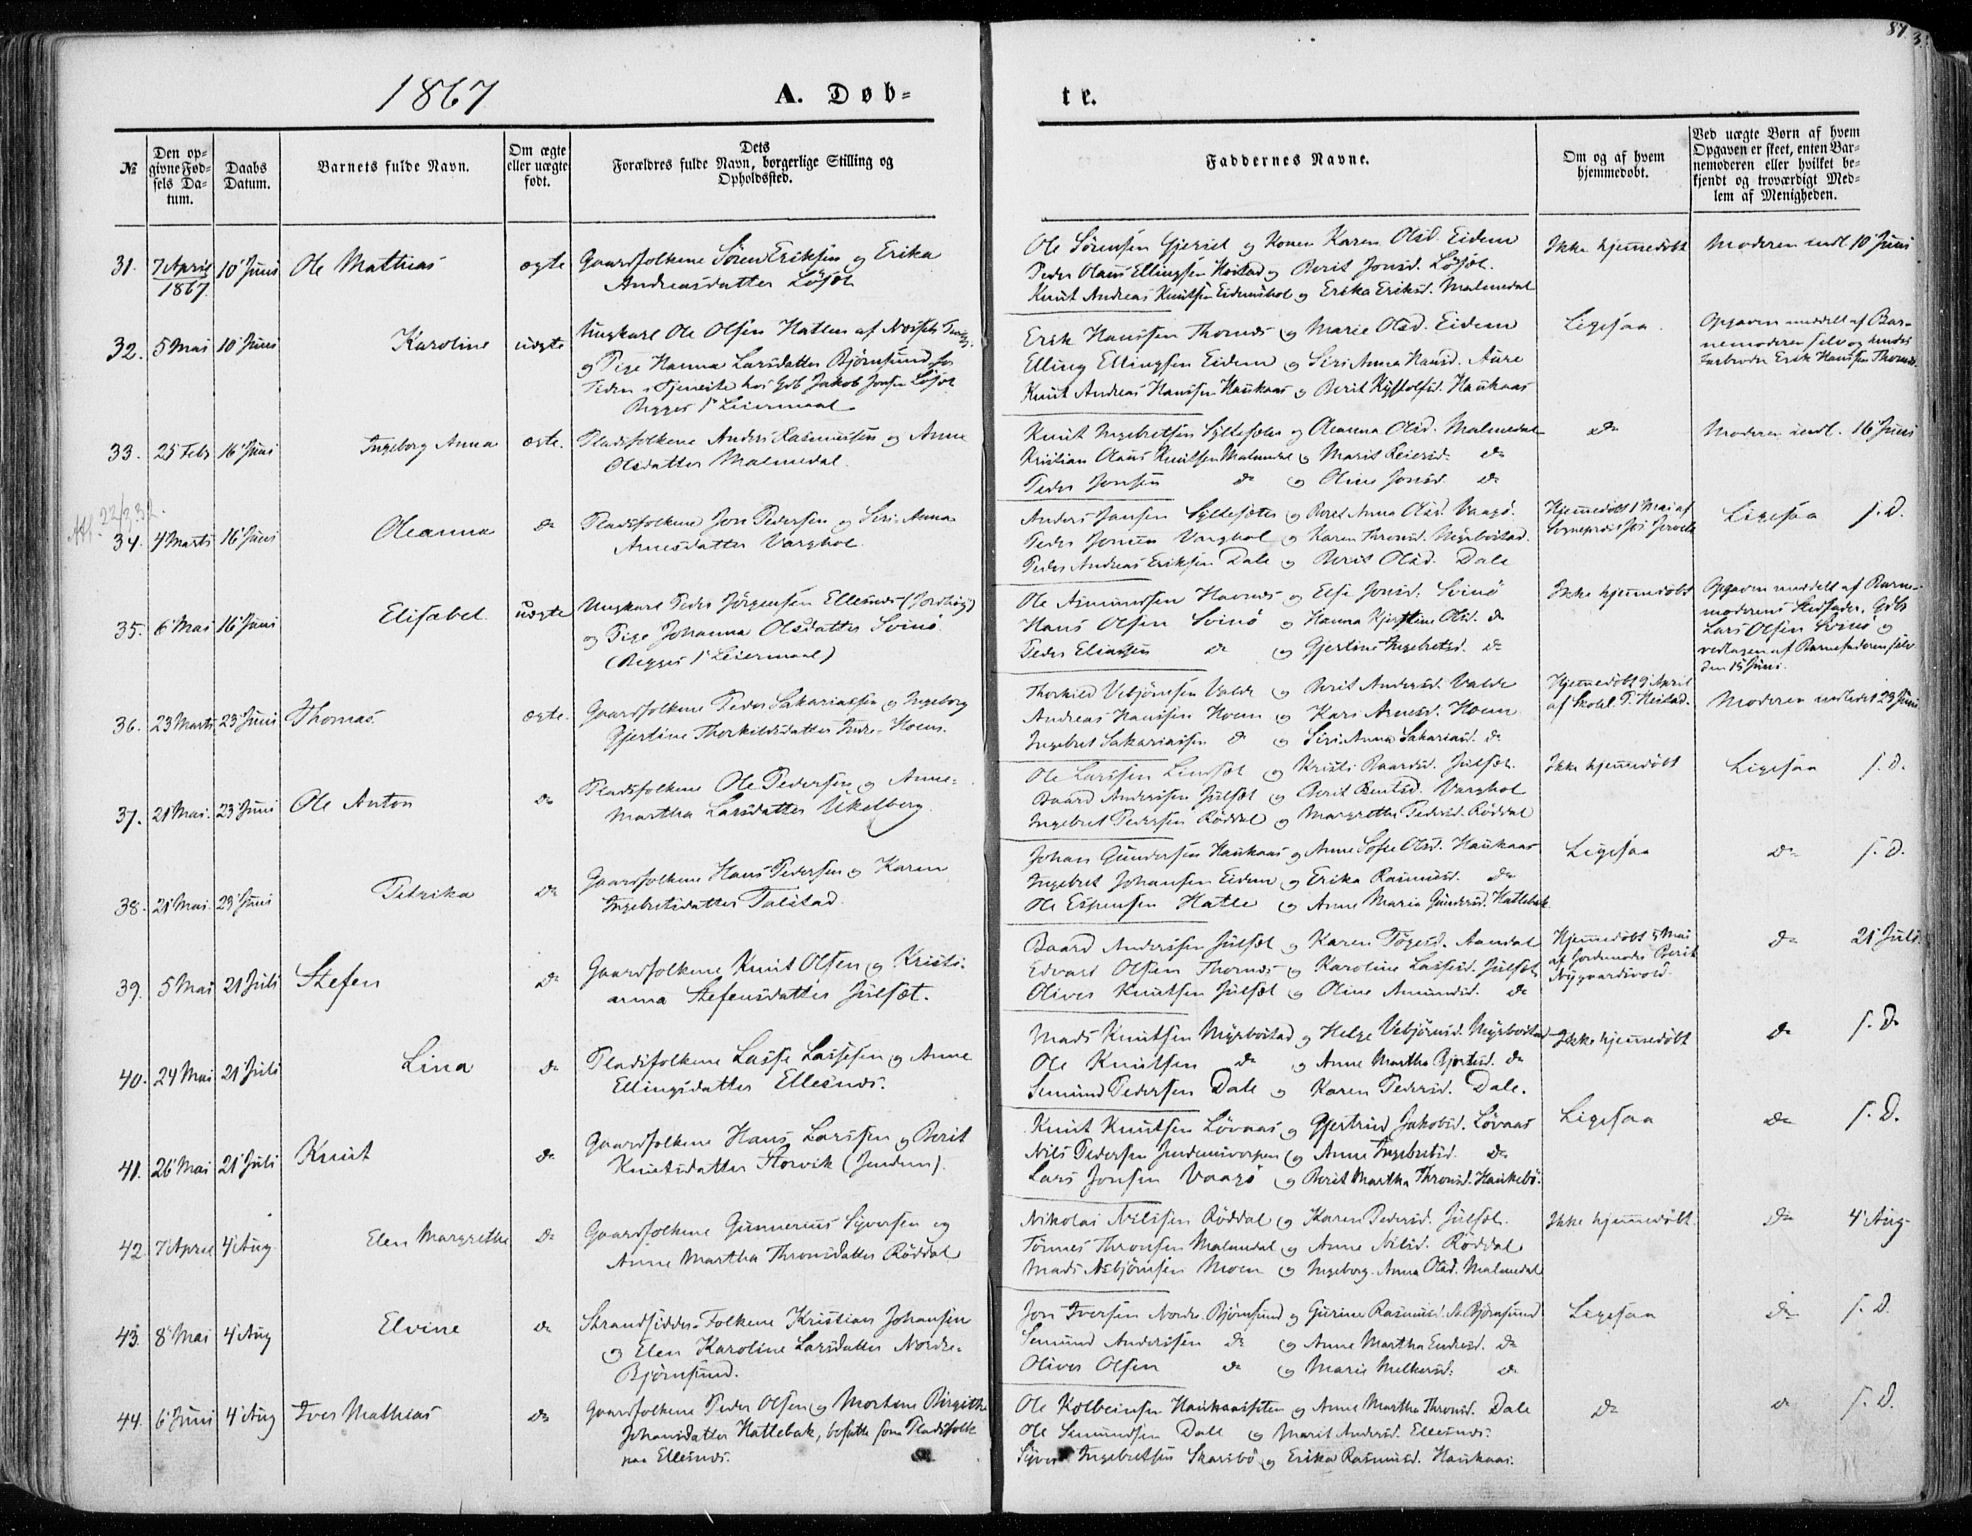 87
3.
1867
A. Døb-
te.
№
Den op-
givne Fød-
sels Da-
tum.
Daabs
Datum.
Barnets fulde Navn.
Om ægte
eller uægte
født.
Dets
Forældres fulde Navn, borgerlige Stilling og
Opholdssted.
Faddernes Navne.
Om og af hvem
hjemmedøbt.
Ved uægte Børn af hvem
Opgaven er skeet, enten Bar-
nemoderen eller hvilket be-
kjendt og troværdigt Med-
lem af Menigheden.
31. 7 April 1867 10 Juni Ole Mathias ægte Gaardfolkene Søren Eriksen og Erika
Andreasdatter Løset
Ole Sørensen Gjerset og Konen Karen Olsd. Eidem
Peder Olaus Ellingsen Heistad og Berit Jonsd. Løset.
Knut Andreas Knutsen Eidemshol og Erika Eriksd. Malmedal
Ikke hjemmedøbt
Moderen indl. 10 Juni
32. 5 Mai 10 Juni Karoline uægte Ungkarl Ole Olsen Hatlen af Næssets
og Pige Hanna Larsdatter Bjørnsund
tjeneste hos Gdb Jakob Jonsen Løset
Begges 1ste Leiermaal
Erik Hanssen Thornes og Marie Olsd. Eidem
Elling Ellingsen Eidem og Siri Anna Hansd. Aure
Knut Andreas Hanssen Haukaas og Berit Kristofsd. Haukaas
Ligesaa
Opgaven meddelt af Bar-
nemoderen selv og hendes
Farbroder Erik Hanssen Thornes
33. 25 Feb 16 Juni Ingeborg Anna ægte. Pladsfolkene Anders Rasmussen og Anne
Olsdatter Malmedal.
Knut Ingebretsen Syltesæter og Oleanna Olsd. Malmedal
Kristian Olaus Knutsen Malmedal og Marit Reiersd. do
Peder Jonsen do og Oline Jonsd. do
do
Moderen indl. 16 Juni
34. 4 Marts 16 Juni Oleanna do Pladsfolkene Jon Pedersen og Siri Anna
Arnesdatter Varghol
Anders Jansen Syltesæter og Beret Anna Olsd. Vaagø.
Peder Jonsen Varghol og Karen Thronsd. Myrbostad.
Peder Andreas Eriksen Dale og Berit Olsd. Dale
Hjemmedøbt 1 Mai af
Ligesaa s. D.
35. 6 Mai 16 Juni Elisabet uægte Ungkarl Peder Jørgensen Ellesnes (Jordhøy)
og Pige Johanna Olsdatter Svinø.
(Begges 1ste Leiermaal)
Ole Asmundsen Havnes og Else Jonsd. Svinø
Hans Olsen Svinø og Hanna Kjerstine Olsd. do
Peder Eliassen do og Gjertine Ingebretsd. do
Ikke hjemmedøbt
Opgaven meddelt af Barne-
moderens Stedfader, Gdb
Lars Olsen Svinø og
vedtagen af Barnefaderen selv
den 15 Juni.
36. 23 Marts 23 Juni Thomas ægte. Gaardfolkene Peder Sakariassen og Ingeborg
Gjertine Thorkildsdatter Indre-Hoem.
Thorkild Vebjørnsen Valde og Berit Andersd. Valde
Andreas Hanssen Hoem og Kari Arnesd. Hoem
Ingebret Sakariassen do og Siri Anna Sakariasd. do
Hjemmedøbt 9 April
af Skolel. P. Heistad.
Moderen indledet 23 Juni
37. 21 Mai. 23 Juni Ole Anton do Pladsfolkene Ole Pedersen og Anne-
Martha Larsdatter Ukelberg.
Ole Larssen Lindset og Kristi Baardsd. Julset.
Baard Anderssen Julset og Berit Bentsd. Varghol
Ingebret Pedersen Røddal og Margrethe Pedersd. Røddal
Ikke hjemmedøbt
Ligesaa s. D.
38. 21 Mai. 23 Juni Petrika do Gaardfolkene Hans Pedersen og Karen
Ingebretsdatter Talstad.
Johan Gundersen Haukaas og Anne Sofie Olsd. Haukaas
Ingebret Johansen Eidem og Erika Rasmusd. do
Ole Espensen Hatle og Anne Maria Gundersd. Hattebak.
Ligesaa
do s. D.
39. 5 Mai 21 Juli Stefen do Gaardfolkene Knut Olsen og Kristi-
anna Stefensdatter Julset.
Baard Anderssen Julset og Karen Tøgersd. Aandal
Edvard Olsen Thornes og Karoline Lassesd. Julset
Oliver Knutsen Julset og Oline Amundsd. do
Hjemmedøbt 5 Mai
af Jordemoder Berit
Nygaardsvold.
do 21 Juli
40. 24 Mai 21 Juli Lina do Pladsfolkene Lasse Lassesen og Anne
Ellingsdatter Ellesnes.
Mads Knutsen Myrbostad og Helge Vebjørnsd. Myrbostad
Ole Knutsen do og Anne Martha Bjertsd. do
Semund Pedersen Dale og Karen Pedersd. Dale.
Ikke hjemmedøbt
do s. D.
41. 26 Mai 21 Juli Knut do Gaardfolkene Hans Larssen og Berit
Knutsdatter Storvik (Jendem).
Knut Knutsen Løvaas og Gjertrud Jakobsd. Løvaas
Nils Pedersen Jendemsvorpen og Anne Ingebretsd. do
Lars Jonsen Vaagø og Berit Martha Thronsd. Haukebø.
Ligesaa
do s. D.
42. 7 April 4 Aug. Elen Margrethe do Gaardfolkene Gunnerius Syversen og
Anne Martha Thronsdatter Røddal
Nikolai Nilssen Røddal og Karen Pedersd. Julset.
Tønnes Thronsen Malmedal og Anne Nilsd. Røddal
Mads Asbjørnsen Moen og Ingeborg Anna Olsd. Malmedal
Ikke hjemmedøbt.
do 4 Aug.
43. 8 Mai 4 Aug Elvine do Strandsidder-Folkene Kristian Johansen
og Elen Karoline Larsdatter Nordre-
Bjørnsund.
Jon Iversen Nordre Bjørnsund og Gurine Rasmusd. N. Bjørnsund
Semund Anderssen do og Anne Martha Endresd. do
Oliver Olsen do og Marie Melkersd. do
Ligesaa
do s. D.
44. 6 Juni 4 Aug Iver Mathias do Gaardfolkene Peder Olsen og Mortine Birgitte
Johansdatter Hattebak, bosatte som Pladsfolk
paa Ellesnes.
Ole Kolbeinsen Haukaassæten og Anne Martha Thronsd. Dale
Ole Semundsen Dale og Marit Andersd. Ellesnes.
Syver Ingebretsen Skarsbø og Erika Rasmusd. Haukaas.
do
do s. D.